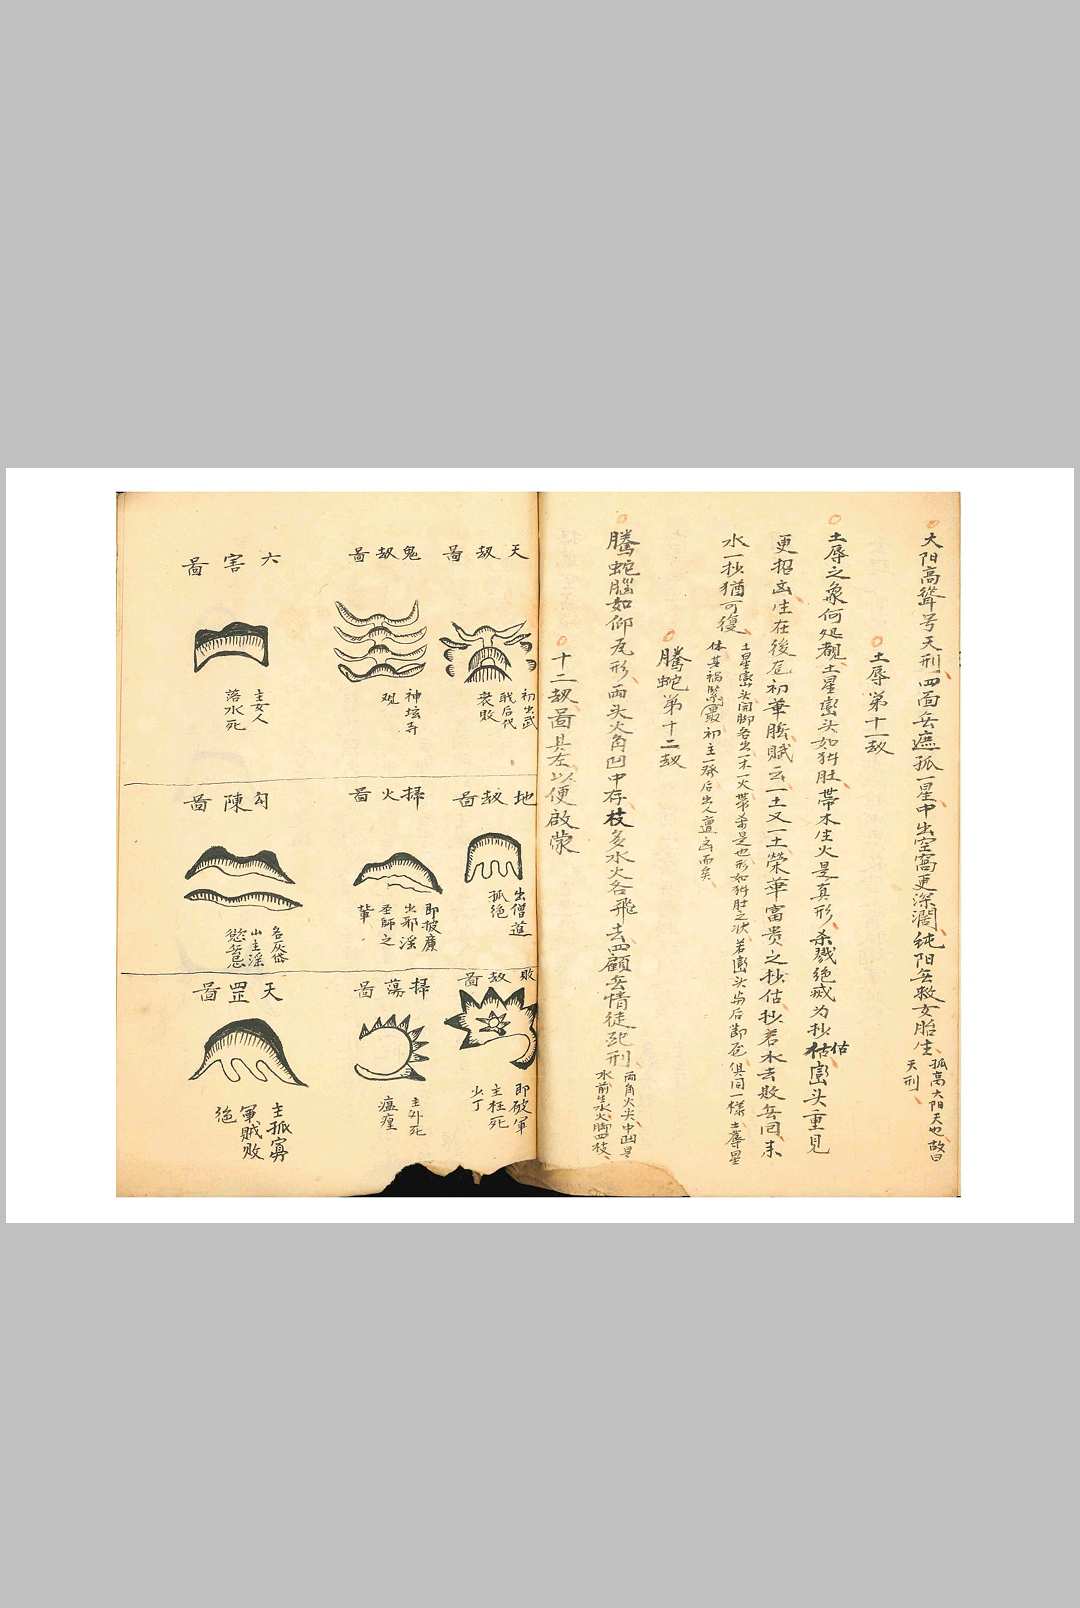 太阳高聳号天刑四面无遮孤一星中出空窩更深濶純阳无救女胎生
孤高太阳天也故曰
天刑
土辱第十一刼
土辱之象何处覩土星巒头如猪肚带木生火是真形杀戮绝灭为抄估巒头重見
更招凶生在後龙初華勝賦云一土又一土榮華富贵之抄估抄若水去敗无回未
水一抄猶可復
土星巒头開脚各出一木一火带煞是也形如猪肚之状若巒头与后断龙俱同一樣土辱星
体其禍緊最初主一發后出人遭凶而矣
騰蛇第十二刼
騰蛇腦如仰瓦形两头火角凹中存枝多水火各飛去四顧无情徒死刑
两角火尖中凹是
水前生水火脚四枝
十二刼圖具左以便啟蒙
天刼圖
初出武
戝后代
衰敗
鬼刼圖
神坛寺
观
六害圖
主女人
落水死
地刼圖
出僧道
孤绝
掃火圖
即披廉
出邪淫
巫師之
輩
勾陳圖
山主淫
慾
敗刼圖
即破軍
主枉死
少丁
掃蕩圖
主外死
瘟㾮
天罡圖
主孤寡
軍賊敗
绝